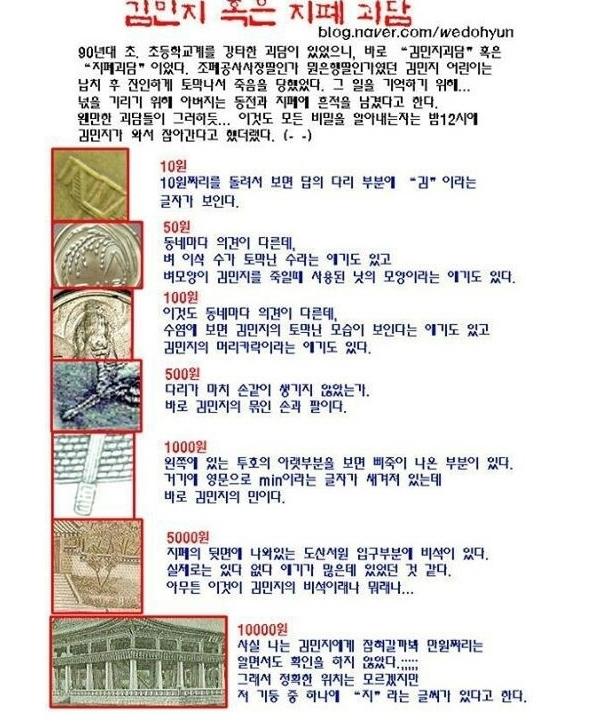 김민지 혹은 지폐 괴담
blog.naver.com/wedohyun
90년대 초, 초등학교계를 강타한 괴담이 있었으니, 바로 "김민지괴담" 혹은
"지폐괴담" 이었다. 조폐공사사장딸인가 뭔은행딸인가였던 김민지 어린이는
납치 후 잔인하게 토막나서 죽음을 당했었다. 그 일을 기억하기 위해...
넋을 기리기 위해 아버지는 동전과 지폐에 흔적을 남겼다고 한다.
왠만한 괴담들이 그러하듯... 이것도 모든 비밀을 알아내는자는 밤12시에
김민지가 와서 잡아간다고 했더랬다. (- -)
10원
10원짜리를 돌려서 보면 탑의 다리 부분에 "김" 이라는
글자가 보인다.
50원
동네마다 의견이 다른데,
벼 이삭 수가 토막난 수라는 얘기도 있고
벼모양이 김민지를 죽일때 사용된 낫의 모양이라는 얘기도 있다.
100원
이것도 동네마다 의견이 다른데,
수염에 보면 김민지의 토막난 모습이 보인다는 얘기도 있고
김민지의 머리카락이라는 얘기도 있다.
500원
다리가 마치 손같이 생기지 않았는가.
바로 김민지의 묶인 손과 팔이다.
1000원
왼쪽에 있는 투호의 아랫부분을 보면 삐죽이 나온 부분이 있다.
거기에 영문으로 min이라는 글자가 새겨져 있는데
바로 김민지의 민이다.
5000원
지폐의 뒷면에 나와있는 도산서원 입구부분에 비석이 있다.
실제로는 있다 없다 얘기가 많은데 있었던 것 같다.
아무튼 이것이 김민지의 비석이래나 뭐래나...
10000원
사실 나는 김민지에게 잡혀갈까봐 만원짜리는
알면서도 확인을 하지 않았다.;;;;;
그래서 정확한 위치는 모르겠지만
저 기둥 중 하나에 "지" 라는 글씨가 있다고 한다.